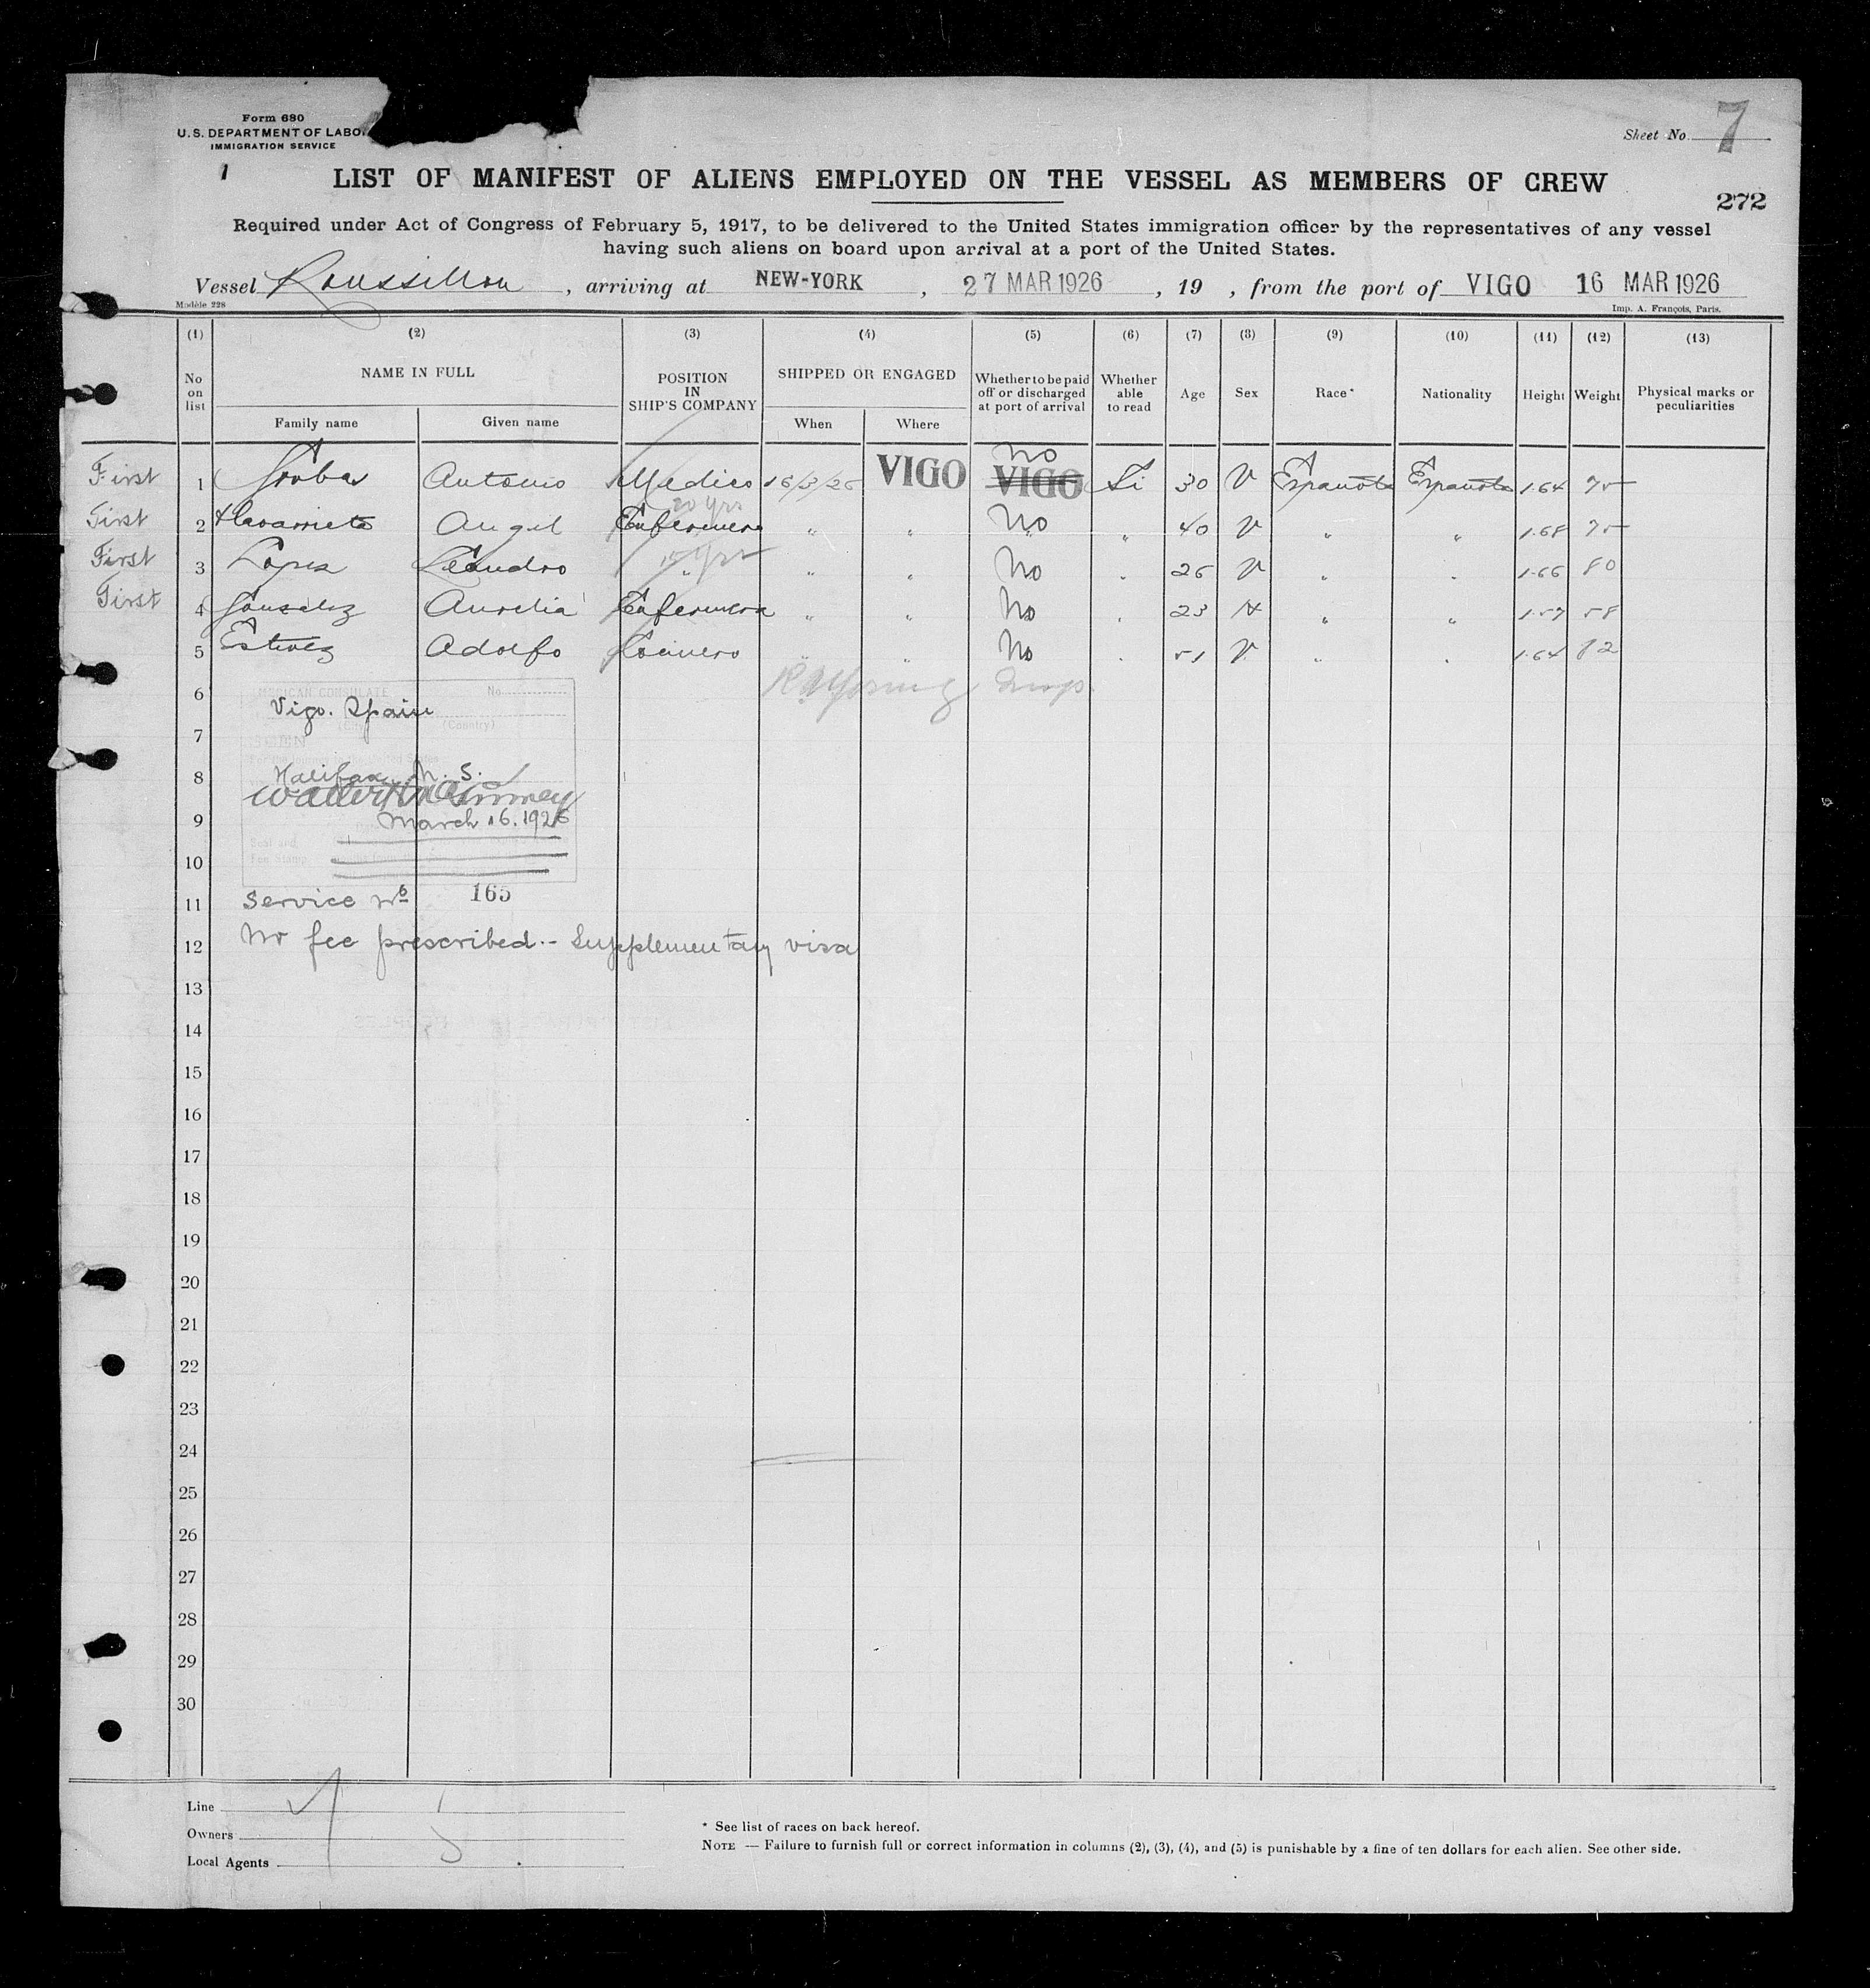 Form 680
U.S. DEPARTMENT OF LABO
IMMIGRATION SERVICE
Sheet No. 7
1
LIST OF MANIFEST OF ALIENS EMPLOYED ON THE VESSEL AS MEMBERS OF CREW
272
Required under Act of Congress of February 5, 1917, to be delivered to the United States immigration officer by the representatives of any vessel
having such aliens on board upon arrival at a port of the United States.
Vessel Roussillon, arriving at NEW-YORK, 27 MAR 1926, 19 , from the port of VIGO 16 MAR 1926
Modèle 228
Imp. A. François, Paris.
(1) (2) (3) (4) (5) (6) (7) (8) (9) (10) (11) (12) (13)
No on list NAME IN FULL POSITION IN SHIP'S COMPANY SHIPPED OR ENGAGED Whether to be paid off or discharged at port of arrival Whether able to read Age Sex Race* Nationality Height Weight Physical marks or peculiarities
Family name Given name When Where
First 1 Antonio Medico 16/3/26 VIGO No VIGO Si 30 V Española Española 1.64 75
20 yrs
First 2 Angel Enfermero " " No " 40 V " " 1.68 75
First 3 Lopez Leandro " " " No " 26 V " " 1.66 80
First 4 Gonzalez Aurelia Enfermera " " No " 23 H " " 1.57 58
5 Estevez Adolfo Cocinero " " No " 51 V " " 1.64 82
6
AMERICAN CONSULATE No.
Vigo. Spain
(City) (Country)
7
SEEN
8
Halifax, N. S.
9
March 16. 1926
Seal and
Fee Stamp
10
11 Service No 165
12 No fee prescribed.- Supplementary visa
13
14
15
16
17
18
19
20
21
22
23
24
25
26
27
28
29
30
Line
Owners
Local Agents
* See list of races on back hereof.
NOTE — Failure to furnish full or correct information in columns (2), (3), (4), and (5) is punishable by a fine of ten dollars for each alien. See other side.